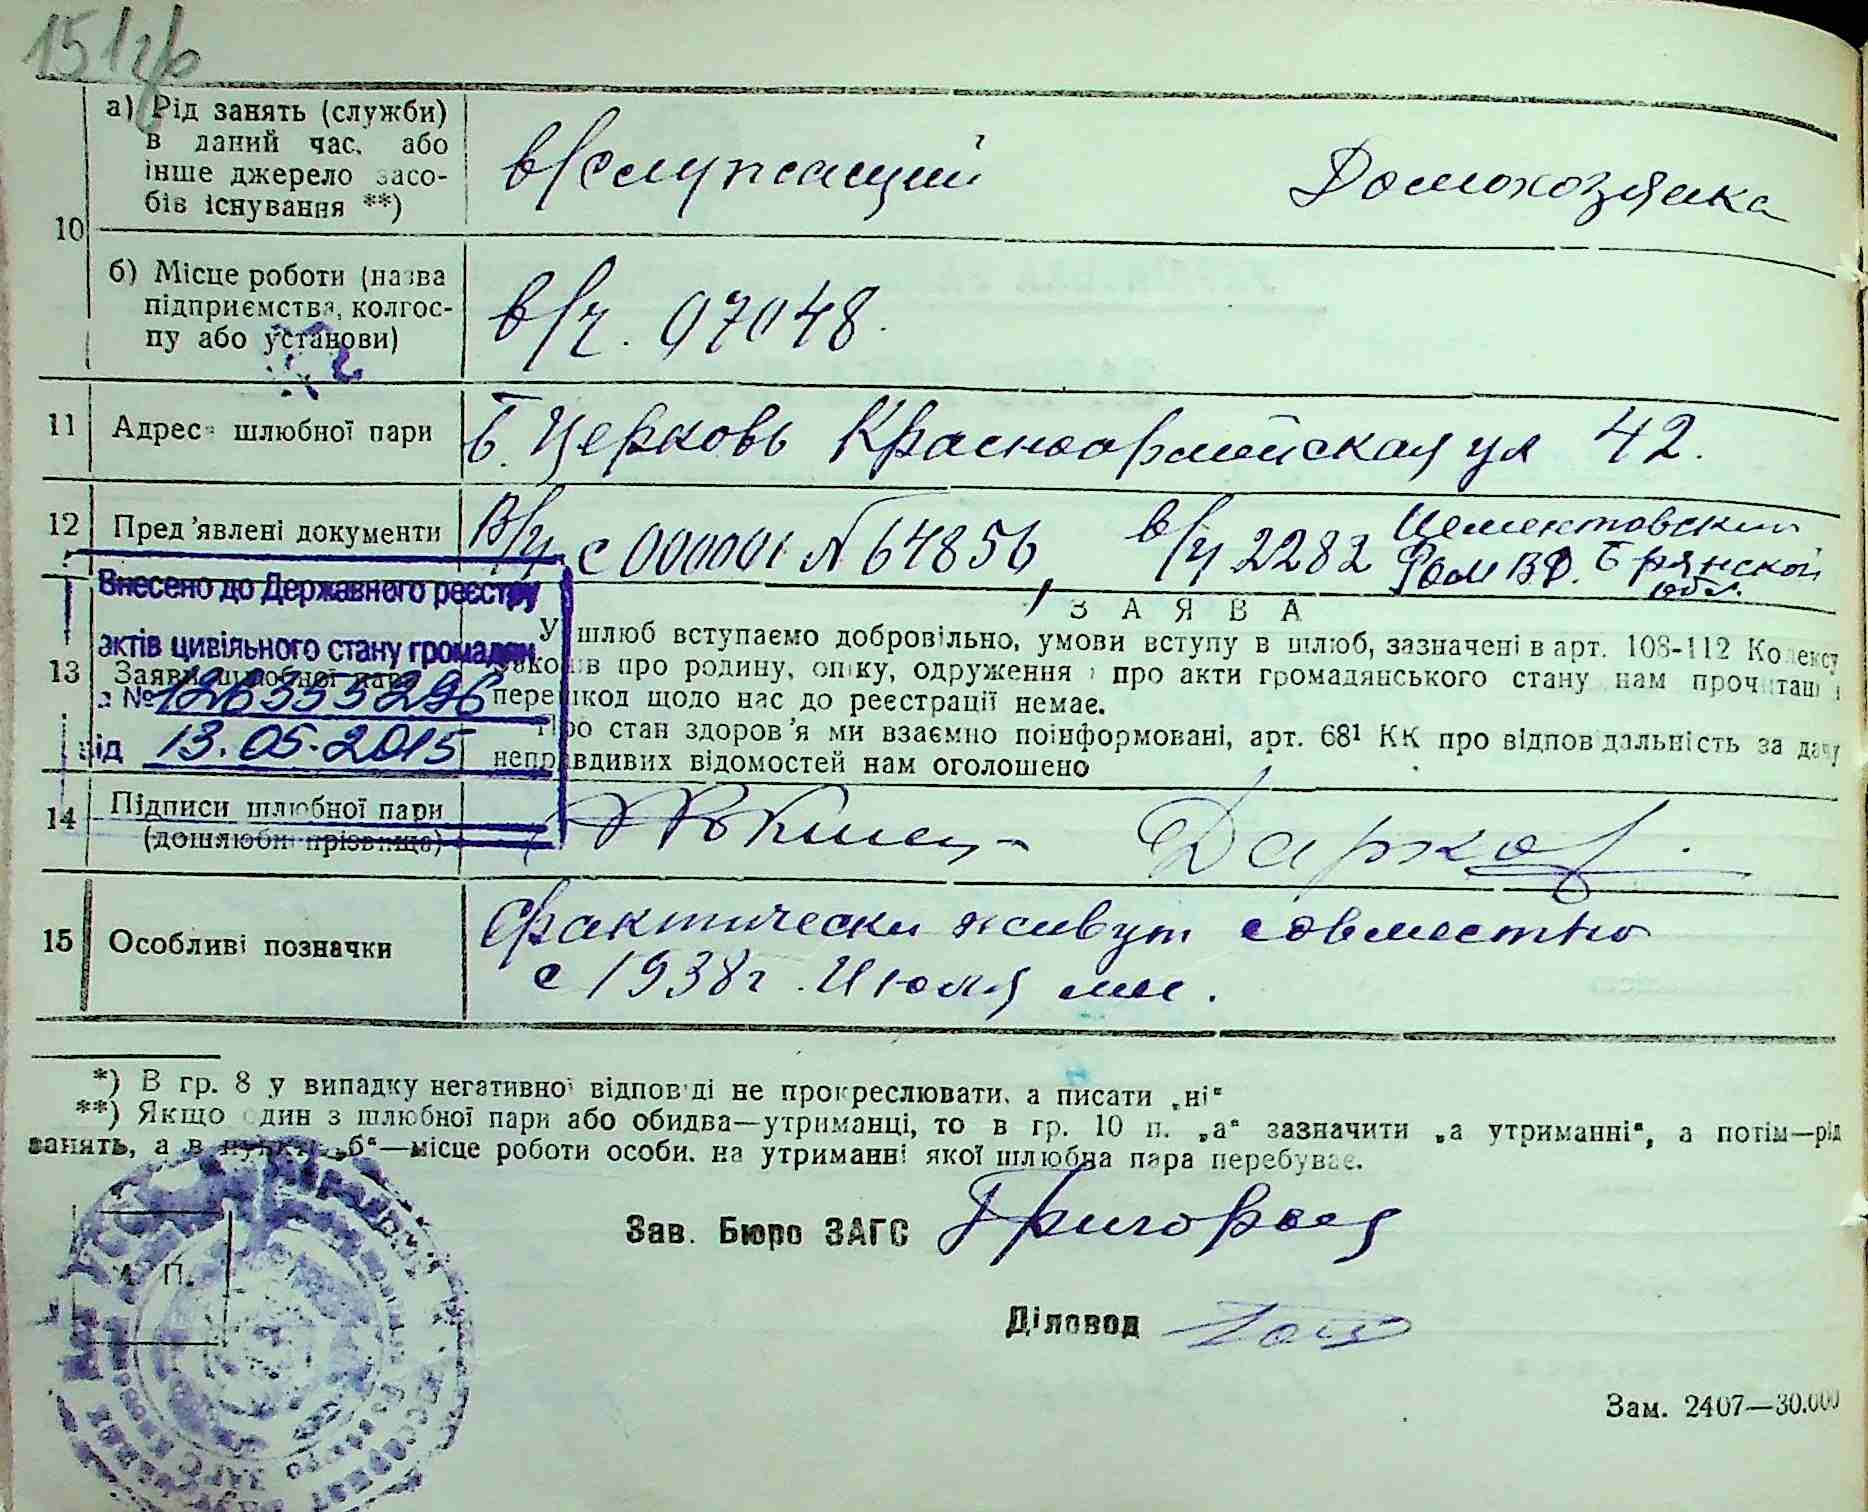 10
а) Рід занять (служби)
в даний час, або
інше джерело засо-
бів існування **)
в/служащий
Домохозяйка
б) Місце роботи (назва
підприємства, колгос-
пу або установи)
в/ч. 07048.
11
Адреса шлюбної пари
Б. Церковь Красноармейская ул 42.
12
Пред'явлені документи
№ 64856,
в/ч 2282
Цементовский
ВД. Брянской
обл.
Внесено до Державного реєстру
актів цивільного стану громадян
від 13.05.2015
13
Заява шлюбної пари
ЗАЯВА
У шлюб вступаємо добровільно, умови вступу в шлюб, зазначені в арт. 108-112 Кодексу
законів про родину, опіку, одруження і про акти громадянського стану нам прочитані і
перешкод щодо нас до реєстрації немає.
Про стан здоров'я ми взаємно поінформовані, арт. 68¹ КК про відповідальність за дачу
неправдивих відомостей нам оголошено
14
Підписи шлюбної пари
(дошлюбні прізвища)
15
Особливі позначки
фактически живут совместно
с 1938г. Июля м-ц.
*) В гр. 8 у випадку негативної відповіді не прокреслювати, а писати „ні“
**) Якщо один з шлюбної пари або обидва—утриманці, то в гр. 10 п. „а“ зазначити „а утриманні“, а потім—рід
занять, а в пункті „б“—місце роботи особи, на утриманні якої шлюбна пара перебуває.
М. П.
Зав. Бюро ЗАГС
Діловод
Зам. 2407—30.000